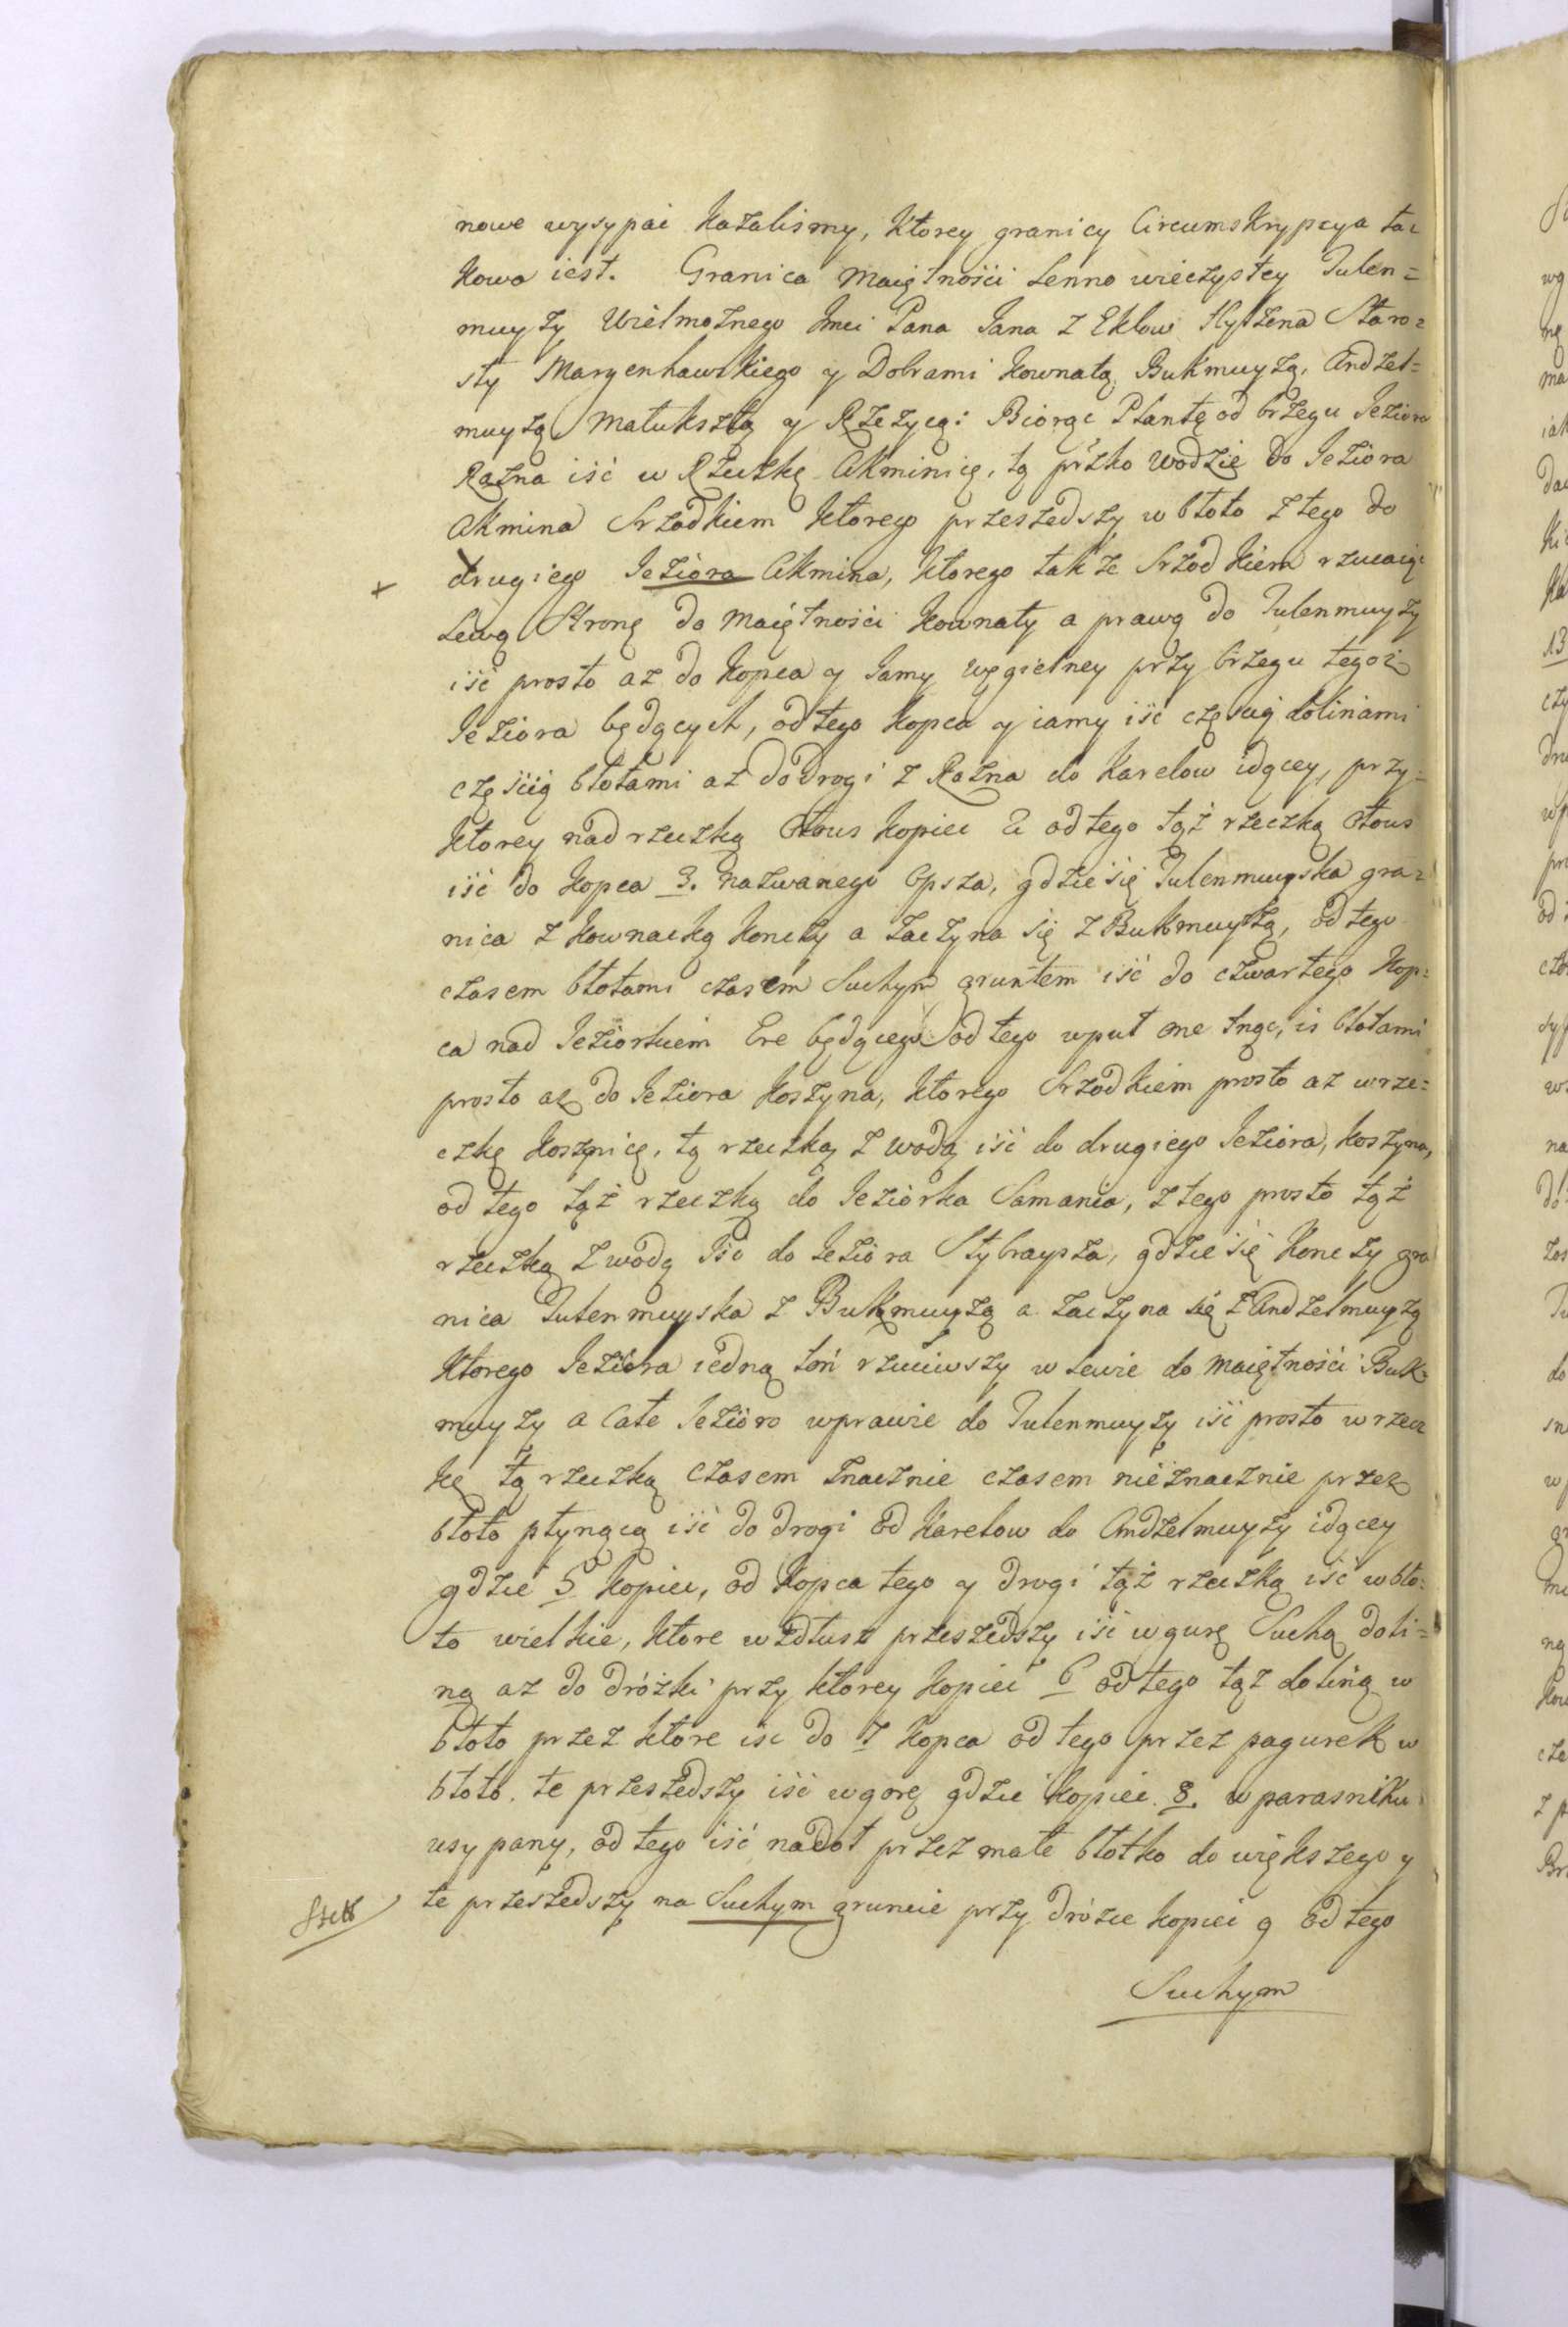 nowe wysypać kazalismy, ktorey granicy Circumskrypcya ta=
kowa iest. Granica Maiętności Lenno wieczystey Tulen=
muyży Wielmożnego Jmci Pana Jana z Eklow Hylzena Staro=
sty Maryenhawskiego y Dobrami Kownatą, Bukmuyżą, Andzel=
muyżą, Matuksztą y Rzeżycą: Biorąc Plantę od brzegu Jeziora
Rażna iść w Rzeczkę Akminicę, tą przeko wodzie do Jeziora
Akmina Srzodkiem ktorego przeszedszy w błoto z tego do
drugiego Jeziora Akmina, ktorego także Srzodkiem rzucaiąc
Lewą Stronę do Maiętności Kownaty a prawą do Tulenmuyży
iść prosto aż do kopca y Jamy węgielney przy brzegu tegoż
Jeziora będących, od tego kopca y iamy iść częscią dolinami
częścią błotami aż do drogi z Rażna do Karelow idącey, przy=
ktorey nad rzeczką Stous kopiec 2 od tego tąż rzeczką Stous
iść do kopca 3. nazwanego Opsza, gdzie się Tulenmuyska gra=
nica z Kownacką konczy a zaczyna się z Bukmuyżą, od tego
czasem błotami czasem Suchym gruntem iść do czwartego kop=
ca nad Jeziorkiem Ere będącego od tego wpuł one tnąc, is błotami
prosto aż do Jeziora Koszyna, ktorego Srzodkiem prosto aż w rze=
czkę Kosznicę, tą rzeczką z wodą iść do drugiego Jeziora, Koszyna,
od tego tąż rzeczką do Jeziorka Samania, z tego prosto tąż
rzeczką z wodą Iśc do Jeziora Stybraysza, gdzie się konczy gra
nica Tulenmuyska z Bukmuyżą a zaczyna się z Andzelmuyżą
ktorego Jeziora iedną toń rzuciwszy w lewie do maiętności Buk=
muyży a Całe Jezioro wprawie do Tulenmuyży iść prosto w rzecz
kę tą rzeczką czasem znacznie czasem nieznacznie przez
błoto płynącą iść do drogi od Karelow do Andzelmuyży idącey
gdzie 5 kopiec, od kopca tego y drogi tąż rzeczką iść w bło=
to wielkie, ktore wzdłusz przeszedszy iść w gurę Suchą doli=
ną aż do dróżki przy ktorey kopiec 6 od tego tąż doliną w
błoto przez ktore isc do 7 kopca od tego przez pagurek w
błoto. te przeszedszy iść w gorę gdzie kopiec. 8. w parasniku
usypany, od tego iść nadoł przez małe błotko do większego y
te przeszedszy na Suchym gruncie przy dróżce kopiec 9 od tego
Suchym